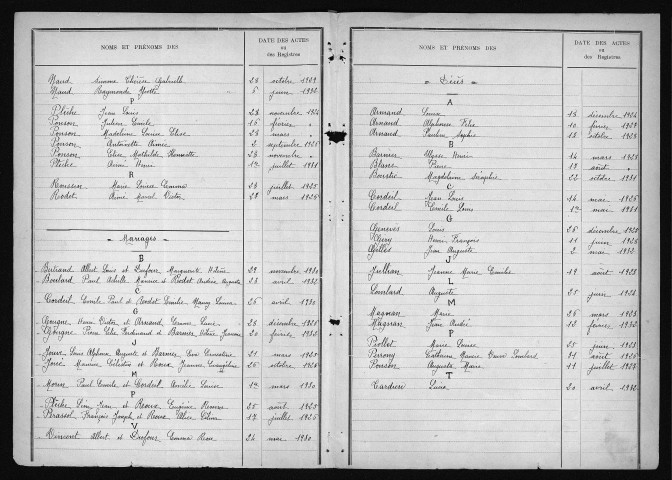 NOMS ET PRÉNOMS DES
DATE DES ACTES
ou
des Registres
Naud Simone Thérèse Gabrielle 28 octobre 1929
Naud Raymonde Yvette 6 juin 1930
P
Plèche Jean Louis 28 novembre 1924
Ponson Julien Emile 16 février
Ponson Madeleine Louise Elise 23 mars
Ponson Antoinette Aimée 2 septembre
Ponson Elise Mathilde Henriette 28 novembre
Plèche Henri 1er juillet 1931
R
Rousson Marie Louise Emma 23 juillet 1925
Rodet Aimé Marcel Victor 29 mars 1926
Mariages
B
Bertrand Albert Louis et Dufour Marguerite Hélène 29 novembre 1930
Boulard Paul Achille Maurice et Rodet Andrée Augusta 23 avril 1932
C
Cordeil Emile Paul et Rodet Emilie Marcy Louise 26 avril 1930
G
Victor et Arnaud 26 décembre
Pierre Elie Ferdinand et Barmès Hélène 20 février 1930
J
Joux Louis Alphonse Auguste et Barmès Ernestine 21 mars 1925
Maurice Célestin et Roux Jeanne Evangeline 26 octobre 1924
M
Morin Paul Camille et Cordeil Amélie Louise 1er mars 1930
P
Plèche Jean et Roux Eugénie 25 août 1925
Brassot François Joseph et Roux Alice 17 juillet 1926
V
Vincent Albert et Dufour Emma Rose 24 mai 1930
NOMS ET PRÉNOMS DES
DATE DES ACTES
ou
des Registres
Décès
A
Armand Louis 13 décembre 1924
Arnaud Alphonse Félix 10 février 1929
Arnaud Pauline Sophie 13 octobre 1928
B
Barmès Ulysse Henri 14 mars 1925
Blanc Pierre 19 août
Magdeleine Séraphie 22 octobre 1931
C
Cordeil Jean Louis 14 mai 1926
Cordeil Camille Louis 1er mai 1931
G
Louis 26 décembre 1920
Henri François 11 juin 1926
Gilles Jean Auguste 2 mai 1932
J
Jullian Jeanne Marie Camille 19 août 1928
L
Lombard Auguste 25 juin 1924
M
Magnan Marie 26 mars 1925
Magnan Jean André 12 février 1932
P
Marie Louise 25 juin 1923
Guillaume Lombard 31 août 1926
Ponson Auguste Marie 11 juillet 1928
T
Tardieu Louise 20 avril 1932